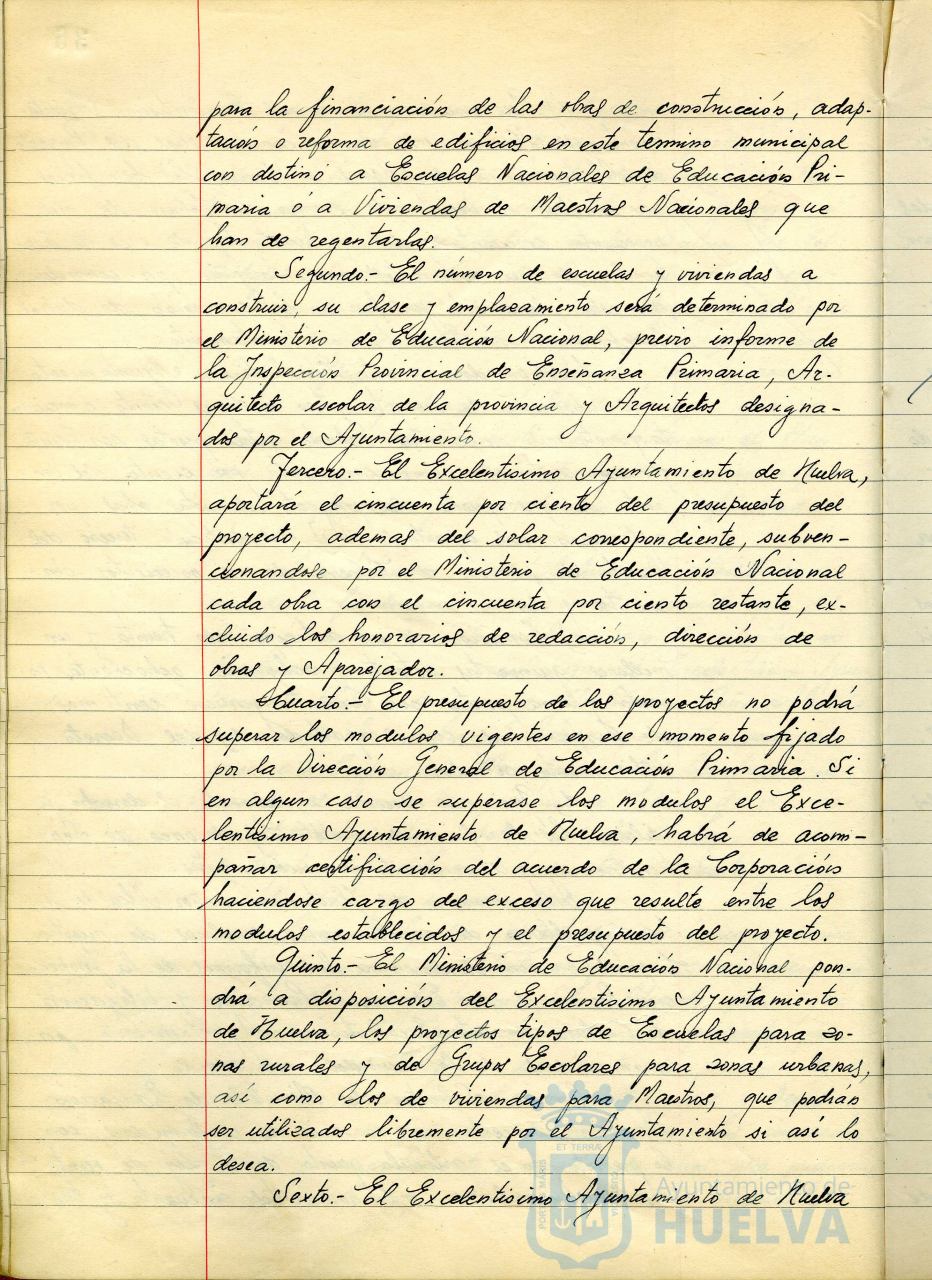 para la financiación de las obras de construcción, adap-
tación o reforma de edificios en este termino municipal
con destino a Escuelas Nacionales de Educación Pri-
maria ó a Viviendas de Maestros Nacionales que
han de regentarlas.
Segundo.- El número de escuelas y viviendas a
construir, su clase y emplazamiento será determinado por
el Ministerio de Educación Nacional, previo informe de
la Inspección Provincial de Enseñanza Primaria, Ar-
quitecto escolar de la provincia y Arquitectos designa-
dos por el Ayuntamiento.
Tercero.- El Excelentisimo Ayuntamiento de Huelva,
aportará el cincuenta por ciento del presupuesto del
proyecto, ademas del solar correspondiente, subven-
cionandose por el Ministerio de Educación Nacional
cada obra con el cincuenta por ciento restante, ex-
cluido los honorarios de redacción, dirección de
obras y Aparejador.
Cuarto.- El presupuesto de los proyectos no podrá
superar los modulos vigentes en ese momento fijado
por la Dirección General de Educación Primaria. Si
en algun caso se superase los modulos el Exce-
lentisimo Ayuntamiento de Huelva, habrá de acom-
pañar certificación del acuerdo de la Corporación
haciendose cargo del exceso que resulte entre los
modulos establecidos y el presupuesto del proyecto.
Quinto.- El Ministerio de Educación Nacional pon-
drá a disposición del Excelentisimo Ayuntamiento
de Huelva, los proyectos tipos de Escuelas para zo-
nas rurales y de Grupos Escolares para zonas urbanas,
así como los de viviendas para Maestros, que podrán
ser utilizados libremente por el Ayuntamiento si así lo
desea.
Sexto.- El Excelentisimo Ayuntamiento de Huelva
ET TERRÆ
Ayuntamiento de
HUELVA